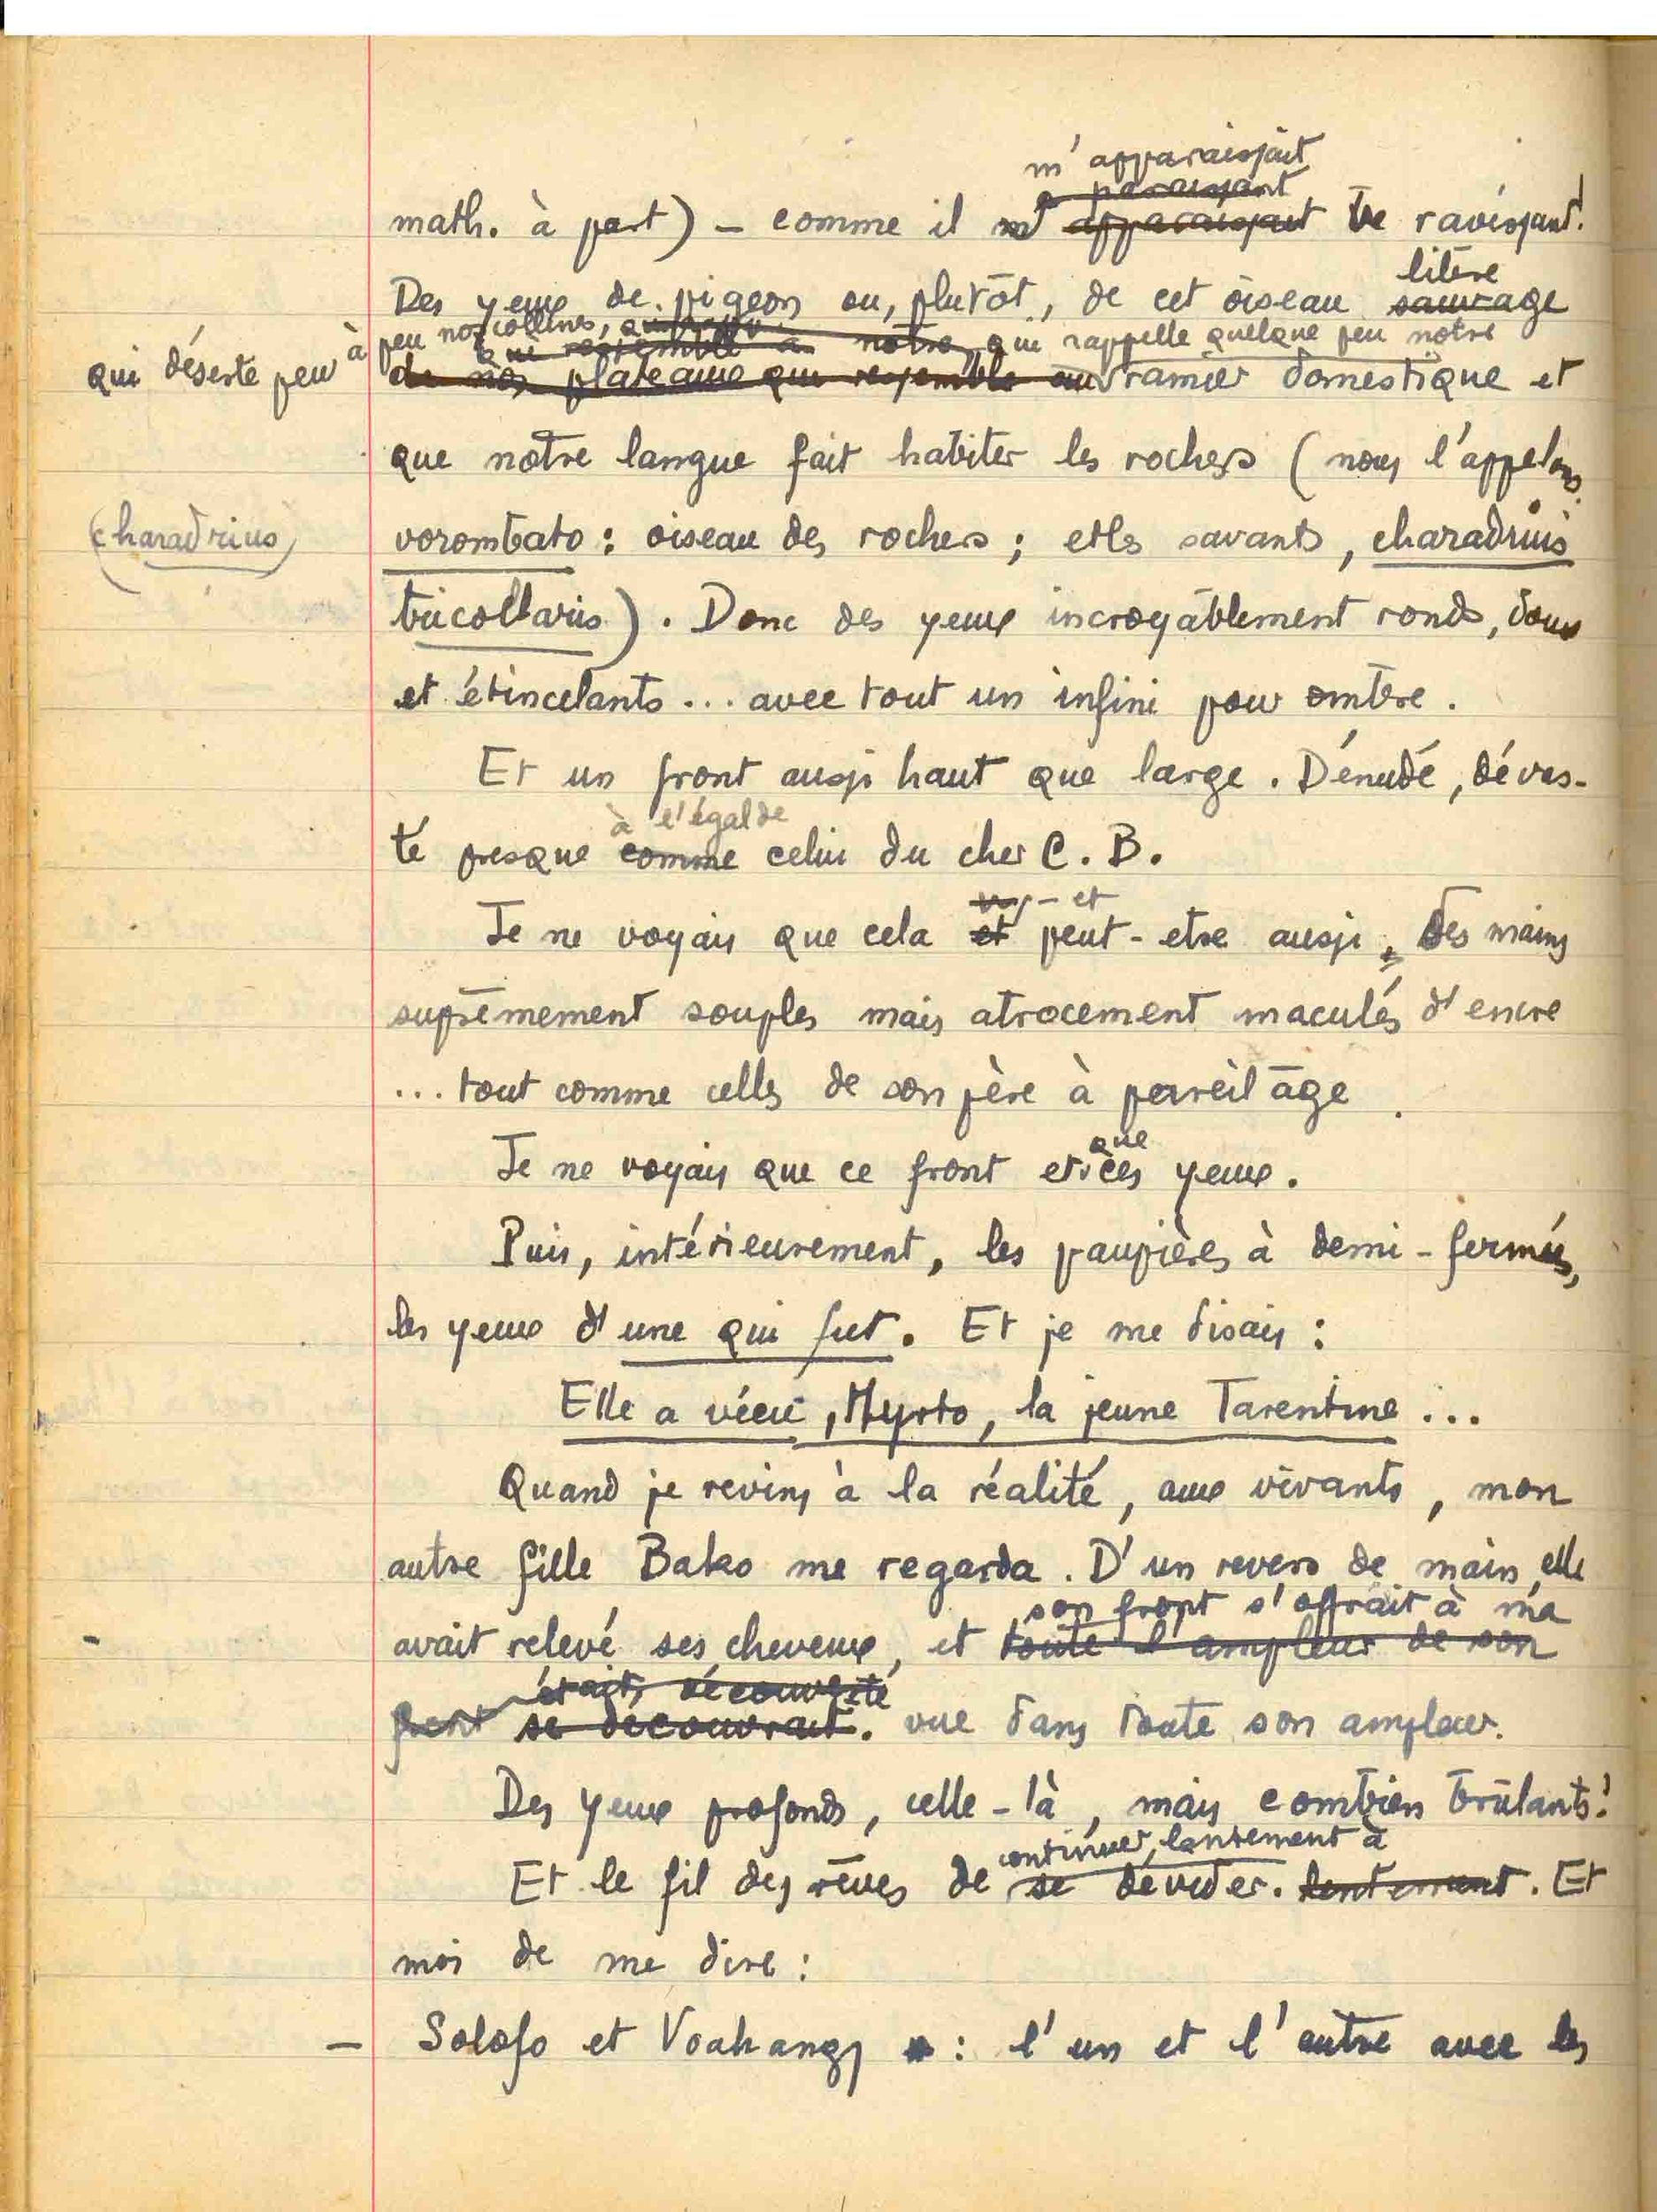 m'apparaissait
paraissant
math. à part) — comme il m' apparaissait be ravissant!
libre
Des yeux de pigeon ou, plutôt, de cet oiseau sauvage
qui déserte peu à peu nos collines,
qui ressemble à notre, qui rappelle quelque peu notre
de nos plateaux qui ressemble au ramier domestique et
que notre langue fait habiter les rochers (nous l'appelons
(charadrius)
vorombato : oiseau des rochers ; et les savants, charadrius
tricollaris). Donc des yeux incroyablement ronds, doux
et étincelants ... avec tout un infini pour ombre.
Et un front aussi haut que large. Dénudé, dévas-
à l'égal de
té presque comme celui du cher C. B.
— et
Je ne voyais que cela et peut-etre aussi, des mains
suprêmement souples mais atrocement maculés d'encre
... tout comme celles de son père à pareil âge
que
Je ne voyais que ce front et ces yeux.
Puis, intérieurement, les paupières à demi-fermées,
les yeux d'une qui fut. Et je me disais :
Elle a vécu, Myrto, la jeune Tarentine ...
Quand je revins à la réalité, aux vivants, mon
autre fille Bako me regarda. D'un revers de main, elle
son front s'offrait à ma
avait relevé ses cheveux, et toute l'ampleur de son
était découverte
front se decouvrait. vue dans toute son ampleur.
Des yeux profonds, celle-là, mais combien brûlants!
continuer, lentement à
Et le fil des rêves de se dévider. lentement. Et
moi de me dire :
— Solofo et Voahangy : l'un et l'autre avec les